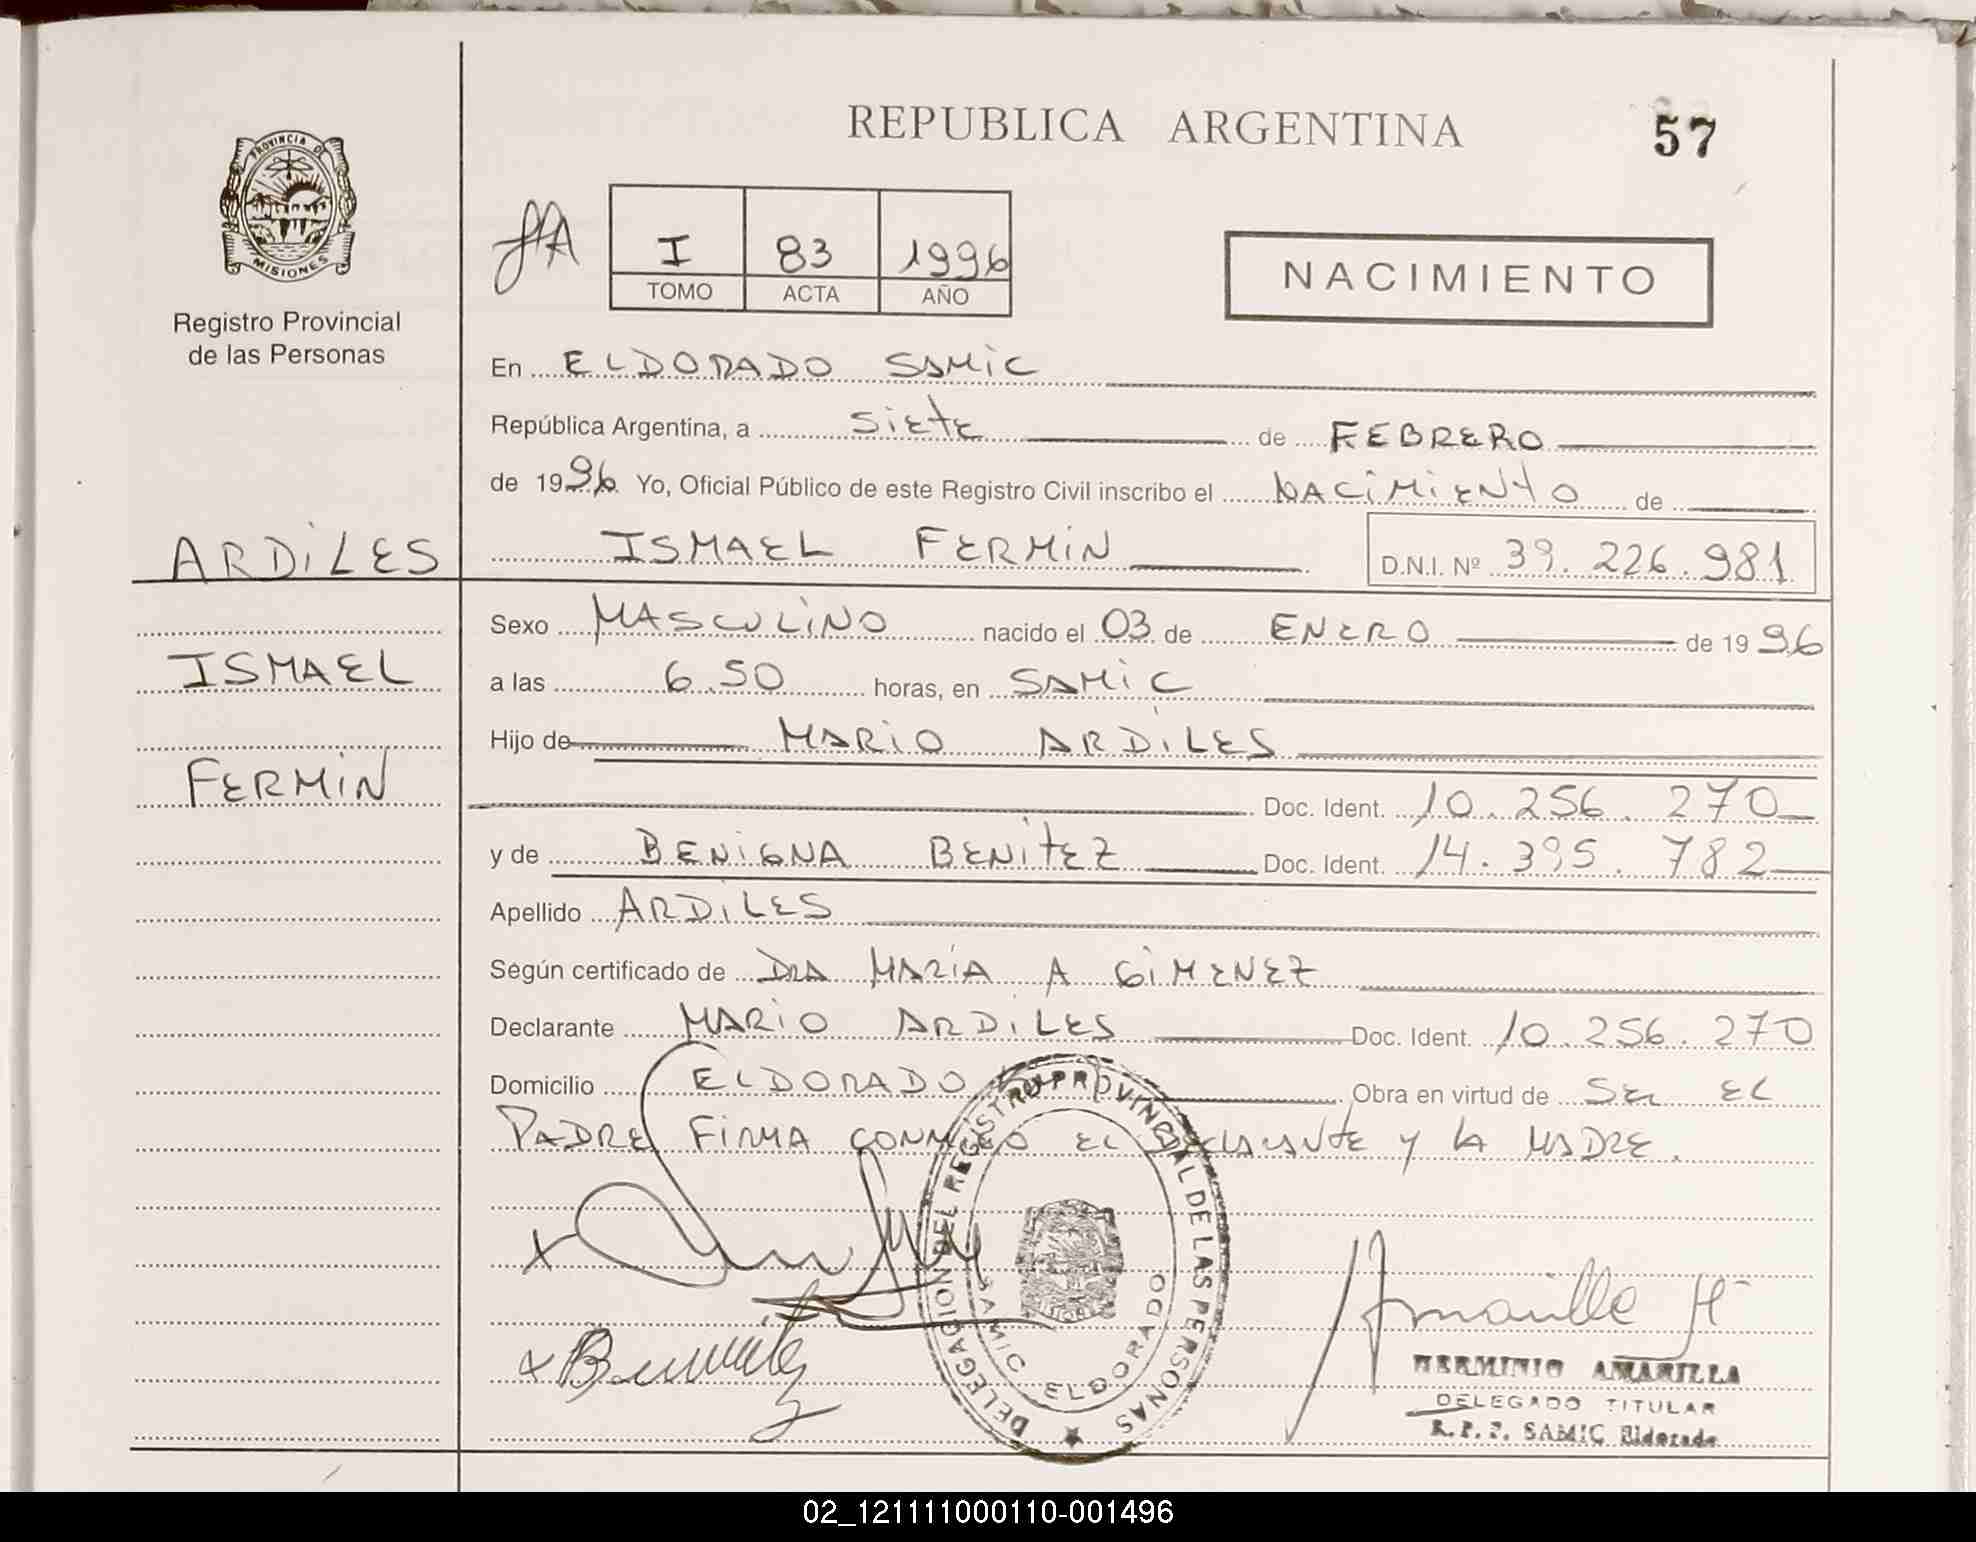 REPUBLICA ARGENTINA
57
PROVINCIA DE MISIONES
Registro Provincial
de las Personas
I 83 1996
TOMO ACTA AÑO
NACIMIENTO
En ELDORADO SAMIC
República Argentina, a siete de FEBRERO
de 1996 Yo, Oficial Público de este Registro Civil inscribo el NACIMIENTO de
ARDILES
ISMAEL FERMIN D.N.I. Nº 39.226.981
Sexo MASCULINO nacido el 03 de ENERO de 1996
ISMAEL
a las 6.50 horas, en SAMIC
Hijo de MARIO ARDILES
FERMIN
Doc. Ident. 10.256.270
y de BENIGNA BENITEZ Doc. Ident. 14.395.782
Apellido ARDILES
Según certificado de DRA MARIA A GIMENEZ
Declarante MARIO ARDILES Doc. Ident. 10.256.270
Domicilio ELDORADO Obra en virtud de SER EL
PADRE FIRMA CONMIGO EL DECLARANTE Y LA MADRE.
DELEGACION DEL REGISTRO PROVINCIAL DE LAS PERSONAS
SAMIC ELDORADO
x
x Benitez
Amarilla H
HERMINIO AMARILLA
DELEGADO TITULAR
R. P. P. SAMIC Eldorado
02_121111000110-001496